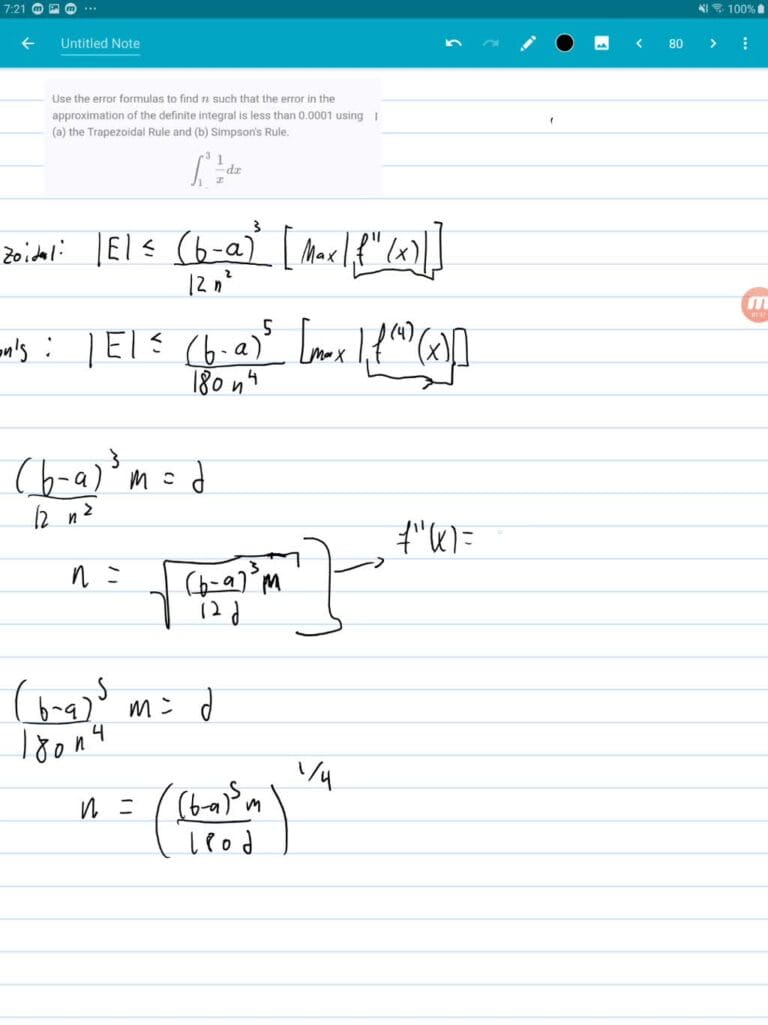 7:21 ... 100%
Untitled Note 80
Use the error formulas to find n such that the error in the
approximation of the definite integral is less than 0.0001 using
(a) the Trapezoidal Rule and (b) Simpson's Rule.
∫₁³ 1/x dx
zoidal: |E| ≤ (b-a)³/12n² [Max|f''(x)|]
on's: |E| ≤ (b-a)⁵/180n⁴ [max|f⁽⁴⁾(x)|]
(b-a)³/12n² m = d
f''(x) =
n = √((b-a)³m/12d)
(b-a)⁵/180n⁴ m = d
n = ((b-a)⁵m/180d)^1/4